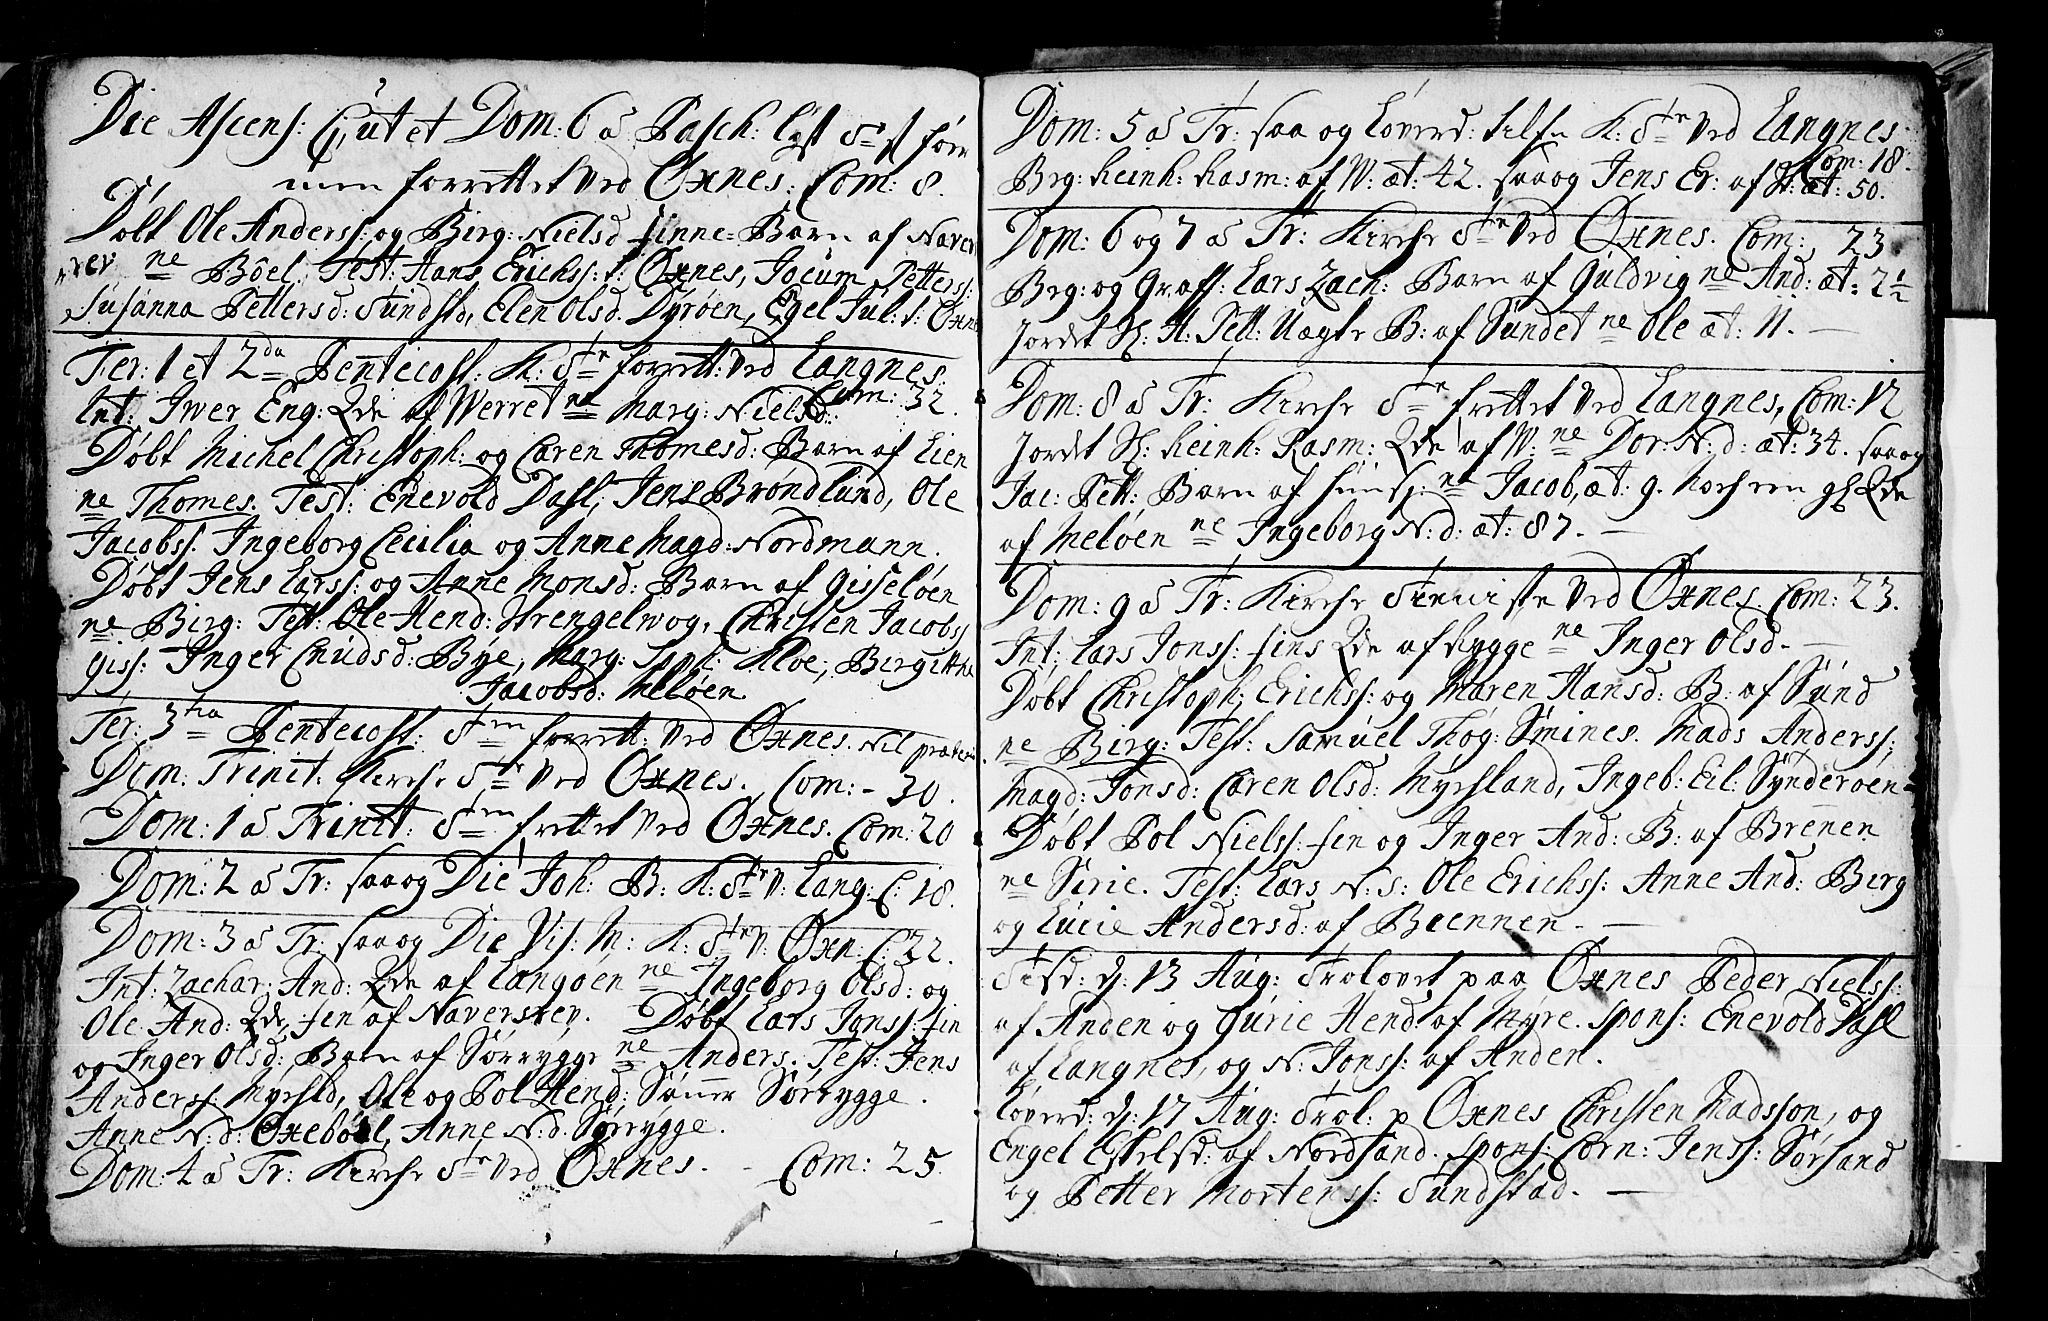 Die Ascens: C: ut et Dom: 6 a Pasch: lyst
men forrettet ved Øxnes: Com: 8.
Døbt Ole Anderss: og Birg: Nielsd finne-Barn af Naver
rev ne Bôel. Test: Hans Erichss: f: Øxnes, Jocum Petterss:
Susanna Pettersd: Sundstd, Elen Olsd. Dyrøen, Egel Jul: f: Øxnes
Fer: 1 et 2da Pentecost: K: Ste forrett: ved Langnes.
Com: 32.
Int: Iwer Eng: Qde af Werret ne Marg: Nielsd:
Døbt Michel Christoph: og Caren Thomesd: Barn af Lien
ne Thomes. Test: Enevold Dahl, Jens Brøndlund, Ole
Jacobss: Ingeborg Cecilia og Anne Magd: Nordmann.
Døbt Jens Larss: og Anne Monsd: Barn af Gisseløen
ne Birg: Test: Ole Hend: Strengelwog, Christen Jacobss
Giss: Inger Cnudsd: Bye, Marg: Soph: Kloe, Birgitha
Jacobsd: Meløen
Fer: 3tia Pentecost: Sten forrett: ved Øxnes. Nil præterea.
Dom: Trinit: Kirche Ste ved Øxnes. Com: - 30.
Dom: 1 a Trinit: Sten frettet ved Øxnes. Com: 20
Dom: 2 a Tr: saa og Die Joh: B: K: Ste v: Lang: C: 18.
Dom: 3 a Tr: saa og Die Vis: M: K: Ste v: Øxn: C: 22.
Int: Zachar: And: Qde af Langøen ne Ingeborg Olsd: og
Ole And: Qde, fin af Naversrev. Døbt Lars Jonss: fin
og Inger Olsd: Barn af Sørrygge ne Anders. Test: Jens
Anderss: Myrhld, Ole og Pol Hend: Sønner Sørrygge.
Anne N:d: Øxebôel, Anne N:d. Sørrygge.
Dom: 4 a Tr: Kirche Ste ved Øxnes. - Com: 25.
Dom: 5 a Tr: saa og Løverd: tilfn K: Ste ved Langnes
Com: 18.
Beg: Reinh: Rasm: af W: æt: 42. saa og Jens Er: af æt: 50.
Dom: 6 og 7 a Tr: Kirche Ste ved Øxnes. Com: 23
Beg: og Graff: Lars Zach: Barn af Guldvig ne And: æt: 2 1/2
Jordet H: Pett: Uægte B: af Sundet ne Ole æt: 11. —
Dom: 8 a Tr: Kirche Ste frettet ved Langnes, Com: 12
Jordet Reinh: Rasm: Qde af W: ne Dor: N:d: æt: 34. saa og
Jac: Pett: Barn af ne Jacob, æt: 9. Noch een Qde
af Meløen ne Ingeborg N:d: æt: 87. —
Dom: 9 a Tr: Kirche Tieniste ved Øxnes. Com: 23.
Int: Lars Jonss: fins Qde af Rygge ne Inger Olsd. —
Døbt Christoph: Erichss: og Maren Hansd: B: af Sund
ne Birg: Test: Samuel Thog: Smines. Mads Anderss:
Magd: Jonsd: Caren Olsd: Myrhland, Ingeb: Eil: Synderøen
Døbt Pol Nielss: fin og Inger And: B: af Brennen
ne Sirie. Test: Lars N:s: Ole Erichss: Anne And: Birg
og Lucie Andersd: af Brennen. —
Tisd: d: 13 Aug: Trolovet paa Øxnes Peder Nielss:
af Anden og Gurie Hend: af Myre. Spons: Enevold Dahl
af Langnes, og N: Jonss: af Anden.
Løverd: d: 17 Aug: Trol: p Øxnes Christen Madsson, og
Engel Eskelsd: af Nordsand. Spons: Corn: Jenss: Sørsand
og Petter Mortenss: Sundstad. —